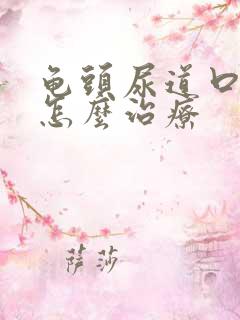 龟頭尿道口
怎麼治療
萨莎